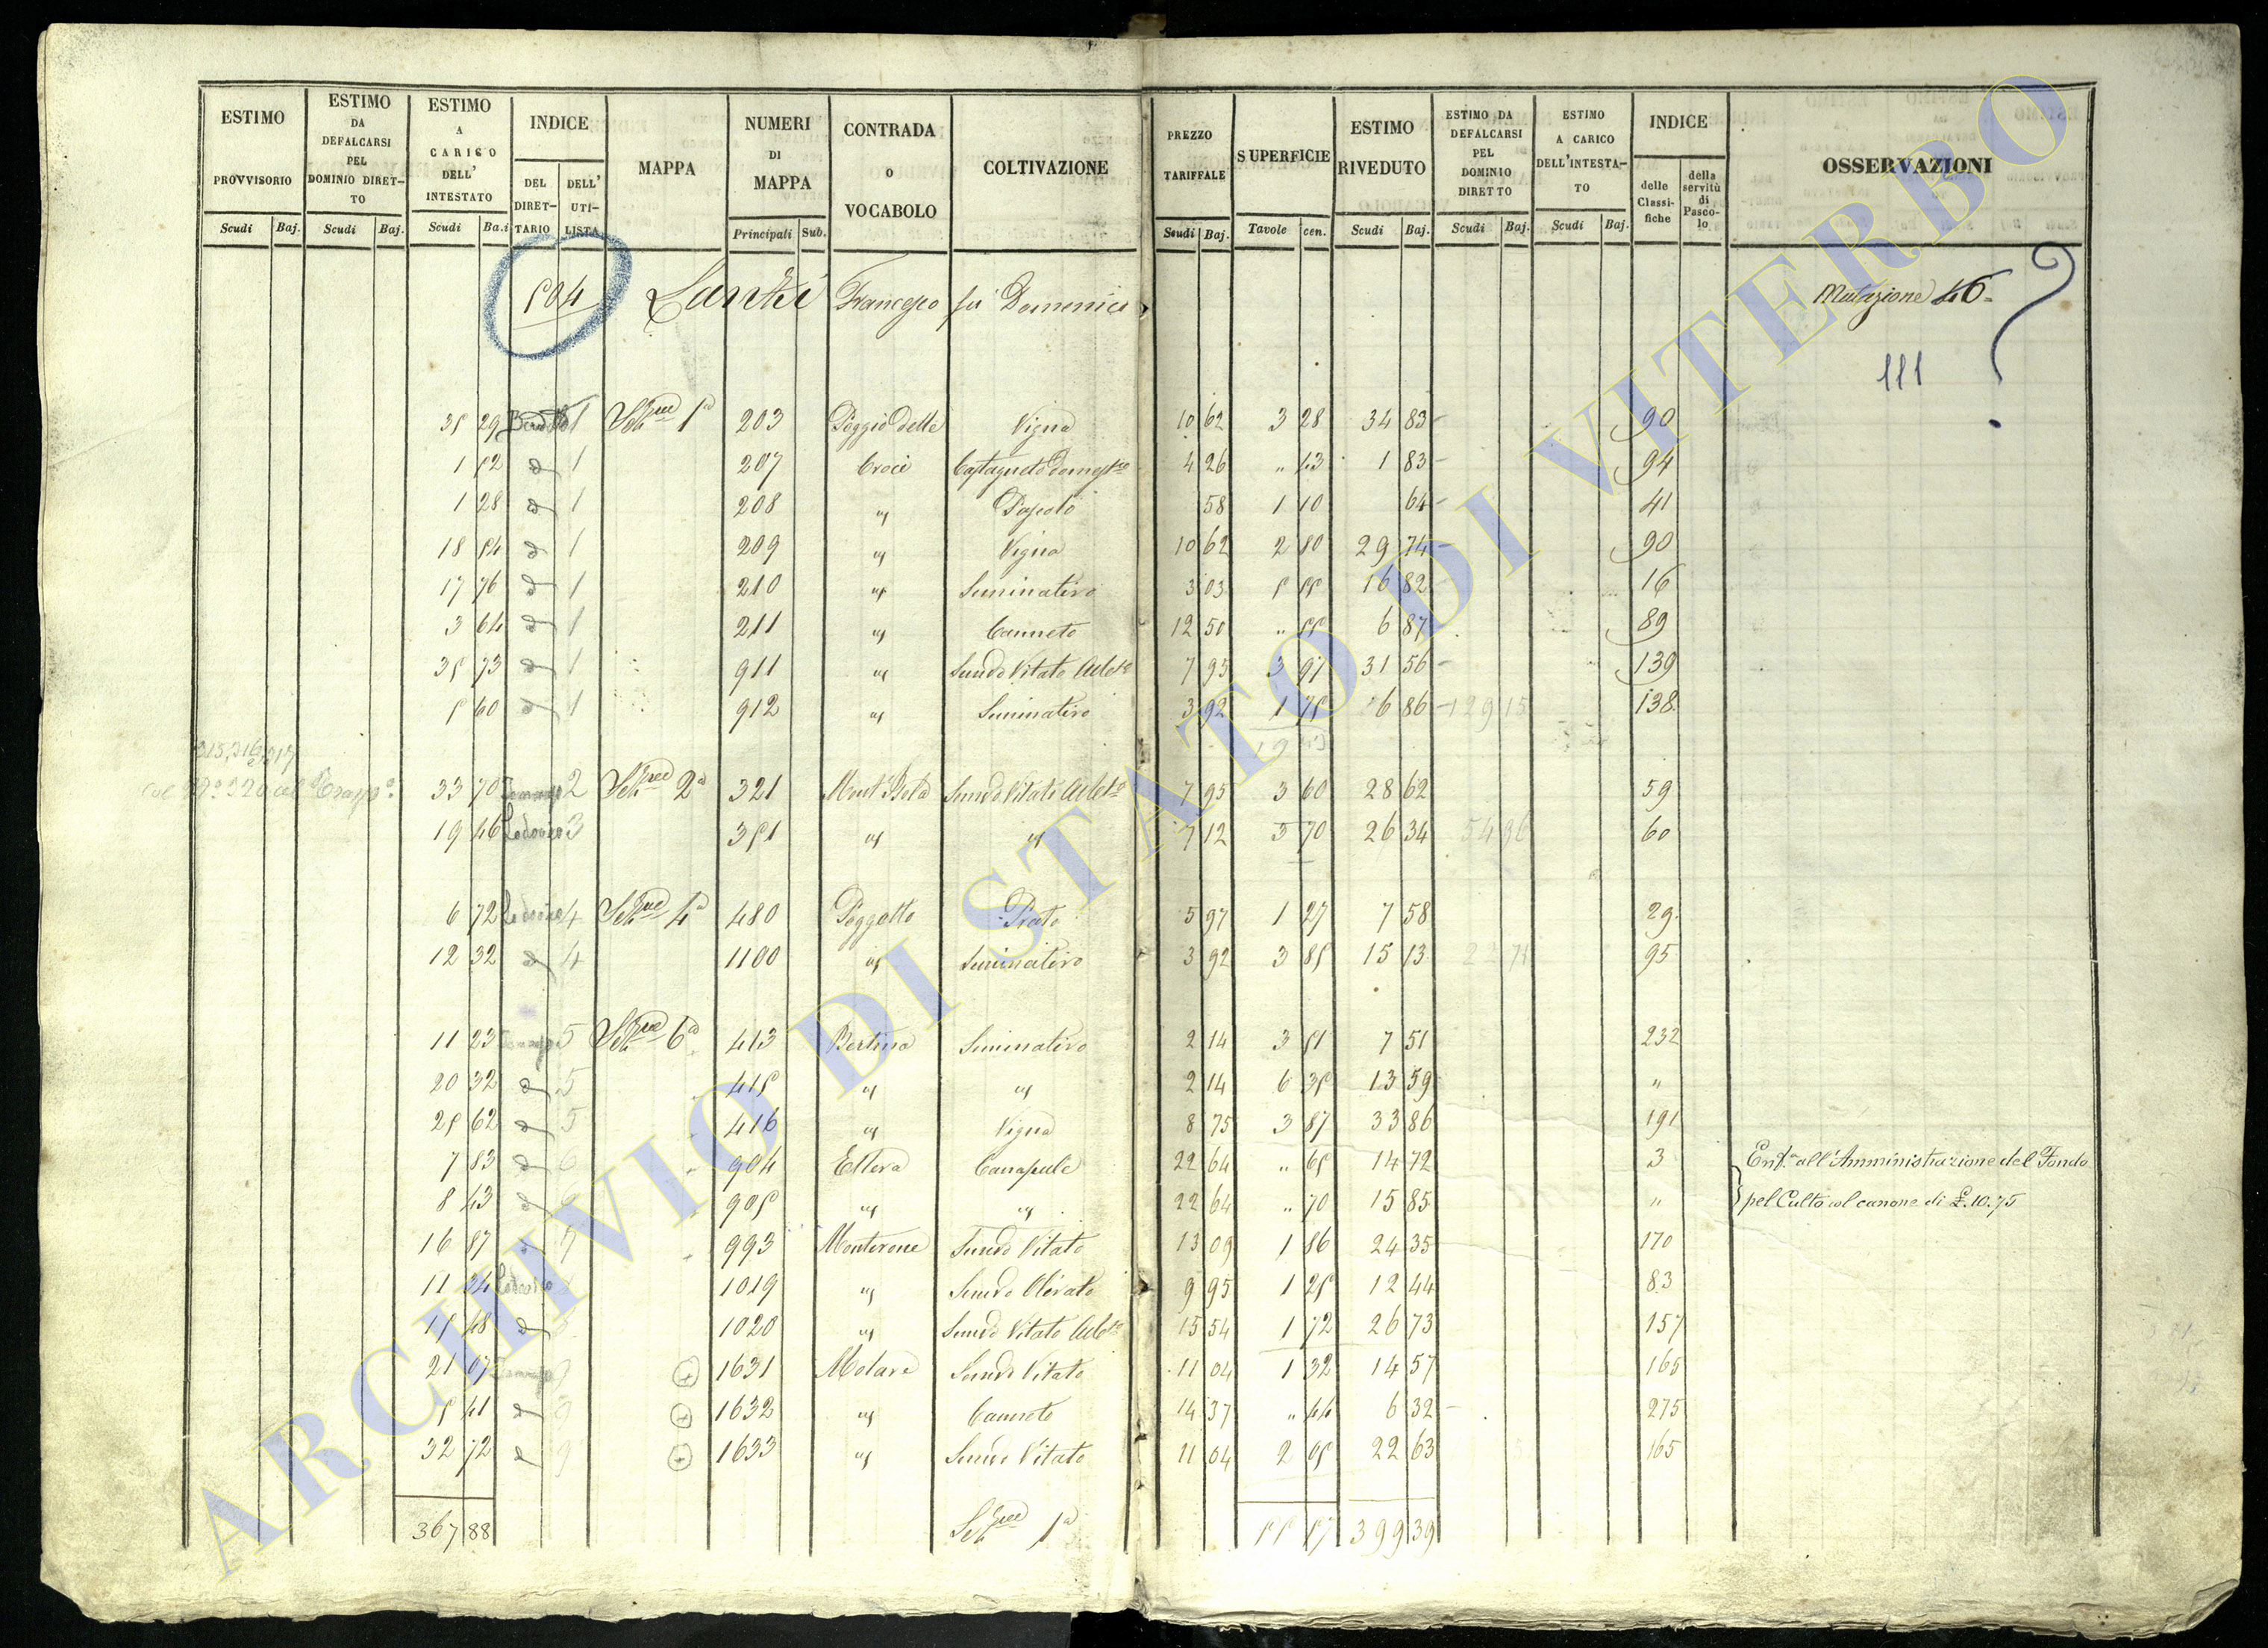 ESTIMO PROVVISORIO Scudi Baj.
ESTIMO DA DEFALCARSI PEL DOMINIO DIRET-TO Scudi Baj.
ESTIMO A CARICO DELL' INTESTATO Scudi Ba.i
INDICE DEL DIRET-TARIO DELL' UTI-LISTA
MAPPA
NUMERI DI MAPPA Principali Sub.
CONTRADA O VOCABOLO
COLTIVAZIONE
PREZZO TARIFFALE Scudi Baj.
SUPERFICIE Tavole cen.
ESTIMO RIVEDUTO Scudi Baj.
ESTIMO DA DEFALCARSI PEL DOMINIO DIRETTO Scudi Baj.
ESTIMO A CARICO DELL'INTESTA-TO Scudi Baj.
INDICE delle Classi-fiche della servitù di Pasco-lo
OSSERVAZIONI
504 Francesco fu Domenico Mutazione 46=
111
35 29 1 Sez.ne 1a 203 Poggio delle Vigna 10 62 3 28 34 83 90
1 52 d 1 207 Croci Castagneto Domest.co 4 26 " 43 1 83 94
1 28 d 1 208 " Pascolo 58 1 10 64 41
18 54 d 1 209 " Vigna 10 62 2 80 29 74 90
17 76 d 1 210 " Seminativo 3 03 5 55 16 82 16
3 64 d 1 211 " Canneto 12 50 " 55 6 87 89
35 73 d 1 911 " Semvo Vitato Albto 7 95 3 97 31 56 139
5 60 d 1 912 " Seminativo 3 92 1 75 6 86 129 15 138
33 70 2 Sez.ne 2a 321 Semvo Vitato Albto 7 95 3 60 28 62 59
19 46 Lodovico 3 351 " " 7 12 3 70 26 34 54 96 60
6 72 Lodovico 4 Sez.ne 4a 480 Poggetto Prato 5 97 1 27 7 58 29
12 32 d 4 1100 " Seminativo 3 92 3 85 15 13 95
11 23 5 Sez.ne 6a 413 Bertina Seminativo 2 14 3 51 7 51 232
20 32 d 5 415 " " 2 14 6 35 13 59 "
25 62 d 5 416 " Vigna 8 75 3 87 33 86 191
7 83 d 6 904 Ellera Canapule 22 64 " 65 14 72 3 Enf.a all'Amministrazione del Fondo
8 43 d 6 905 " " 22 64 " 70 15 85 " pel Culto col canone di £. 10.75
16 87 d 7 993 Monterone Semvo Vitato 13 09 1 86 24 35 170
11 24 Lodovico 1019 " Semvo Olivato 9 95 1 25 12 44 83
15 48 d 1020 " Semvo Vitato Albto 15 54 1 72 26 73 157
21 07 9 1631 Molare Semvo Vitato 11 04 1 32 14 57 165
5 41 d 9 1632 " Canneto 14 37 " 44 6 32 275
32 72 d 9 1633 " Semvo Vitato 11 04 2 05 22 63 165
367 88 Sez.ne 1a 55 57 399 39
ARCHIVIO DI STATO DI VITERBO